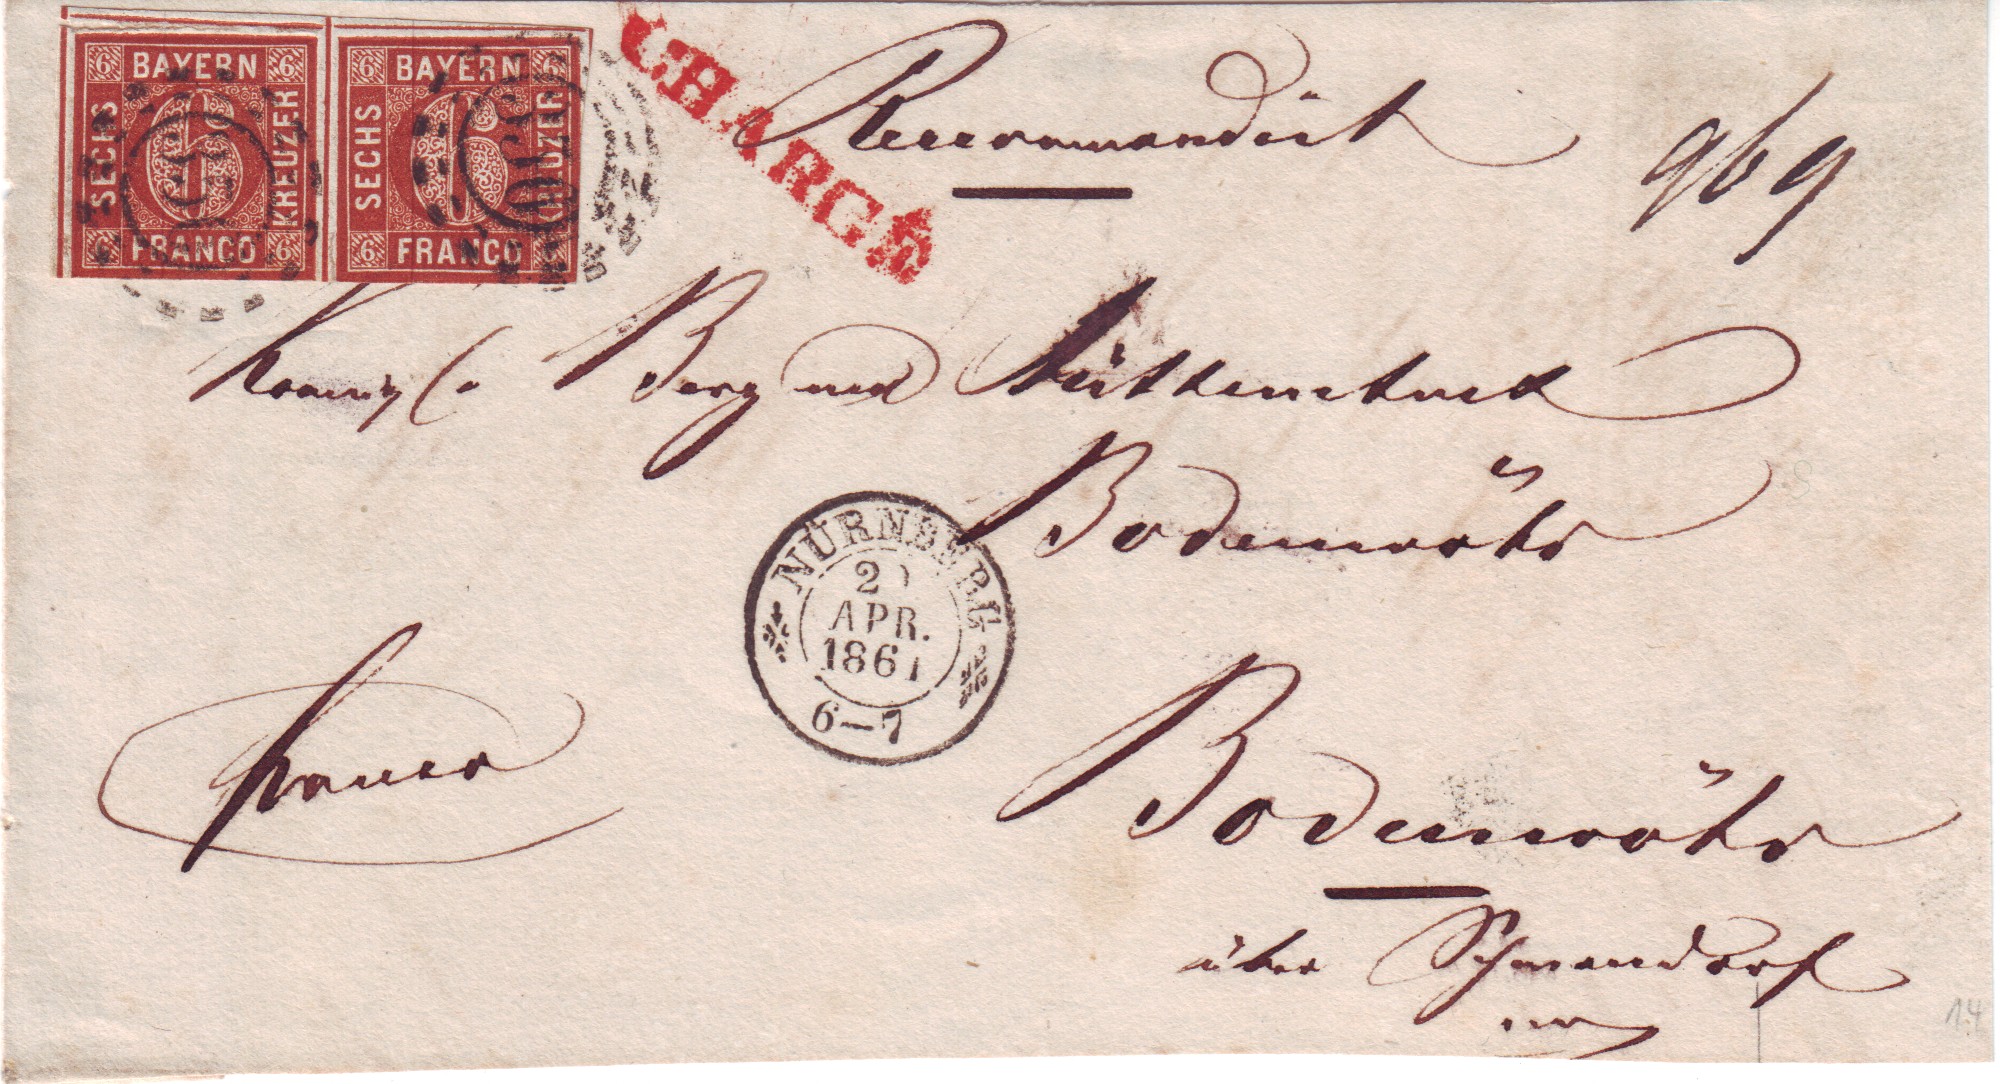 6 BAYERN 6
SECHS
KREUZER
6 FRANCO 6
6 BAYERN 6
SECHS
KREUZER
6 FRANCO 6
CHARGÉ
Recommandirt
969
Berg und Hüttenamt
Bodenwöhr
NÜRNBERG
2
APR.
1861
6—7
franco
Bodenwöhr
über Schwandorf
14